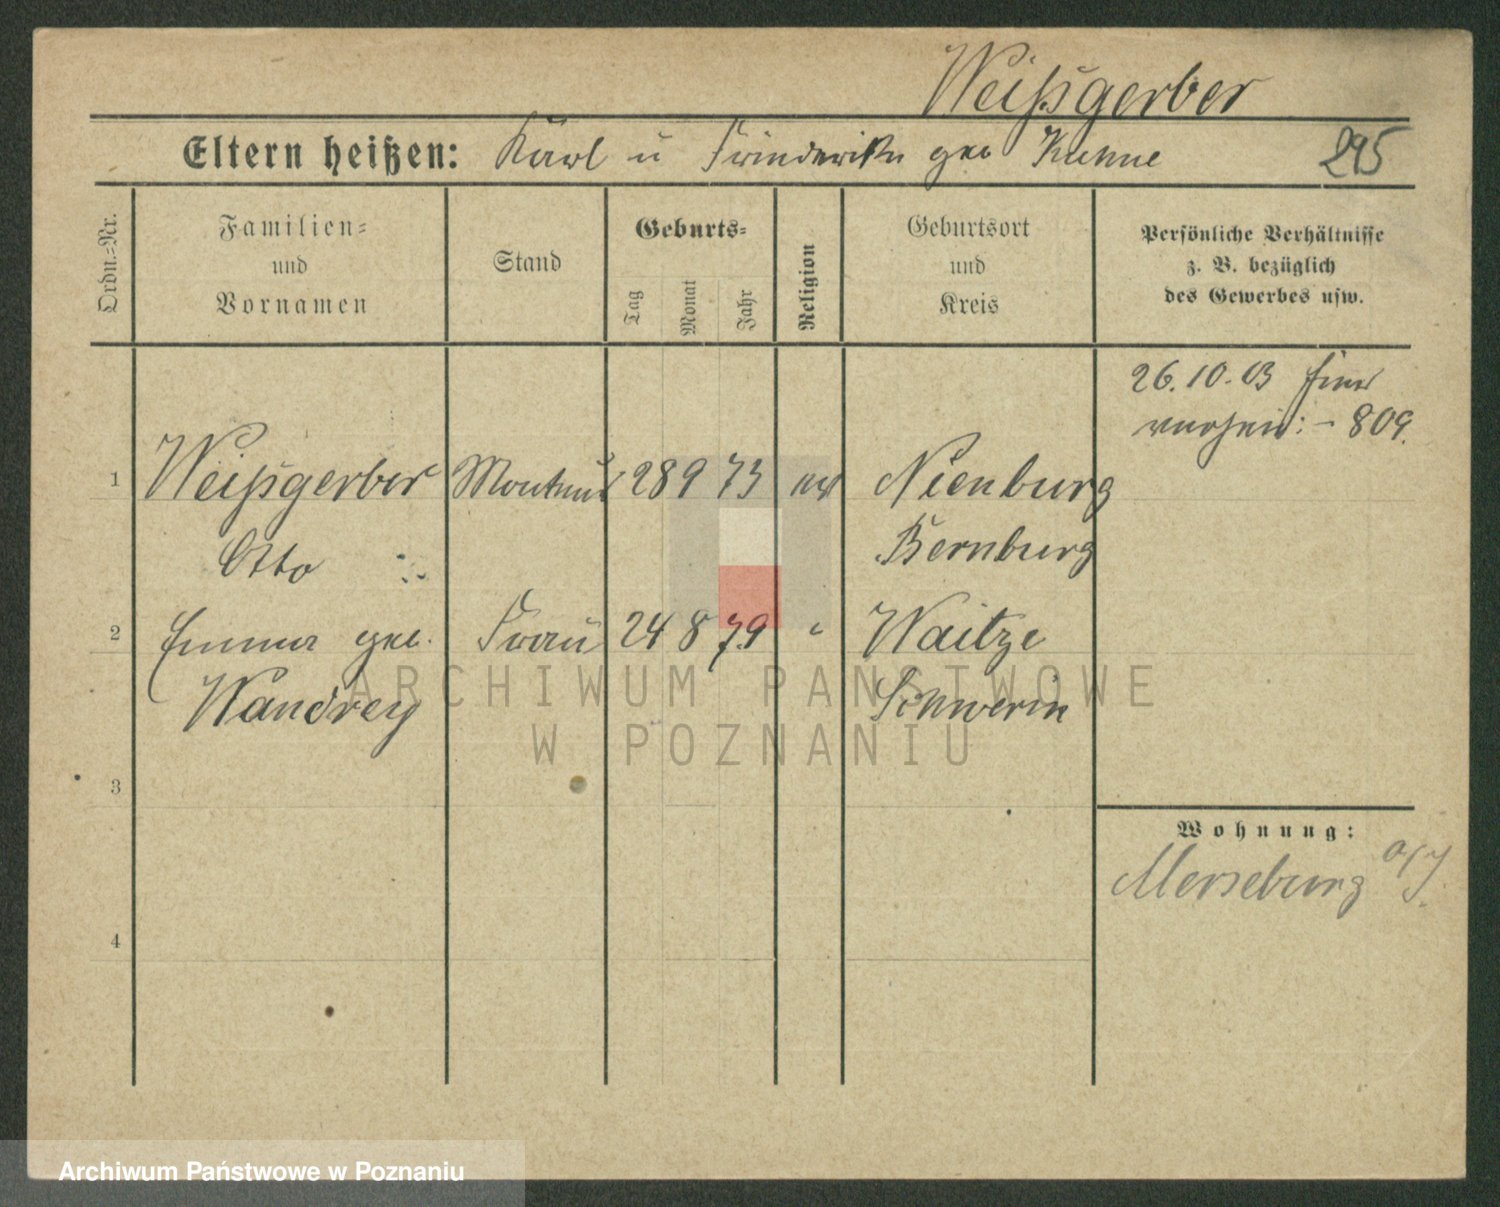 Weißgerber
Eltern heißen: Karl u Friederike geb Kuhne
295
Ordn.-Nr.
Familien-
und
Vornamen
Stand
Geburts-
Tag
Monat
Jahr
Religion
Geburtsort
und
Kreis
Persönliche Verhältnisse
z. B. bezüglich
des Gewerbes usw.
26.10.03
809.
1 Weißgerber Monteur 28 9 73 Nienburg
Otto Bernburg
2 Emma geb. Frau 24 8 79 " Waitze
Wandrey Schwerin
3
4
Wohnung:
Merseburg
ARCHIWUM PAŃSTWOWE
W POZNANIU
Archiwum Państwowe w Poznaniu